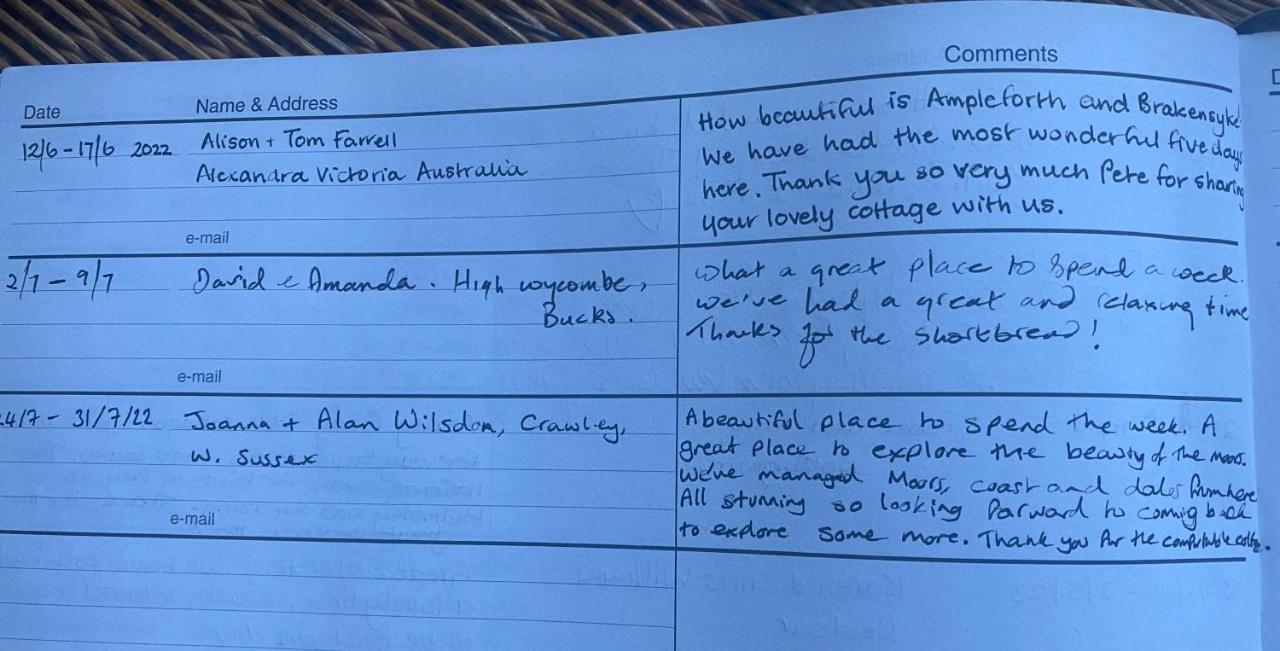 Comments
Date
Name & Address
12/6 - 17/6 2022
Alison + Tom Farrell
Alexandra Victoria Australia
How beautiful is Ampleforth and Brakensyke
We have had the most wonderful five days
here. Thank you so very much Pete for sharing
your lovely cottage with us.
e-mail
2/7 - 9/7
David & Amanda. High wycombe,
Bucks.
What a great place to spend a week.
we've had a great and relaxing time
Thanks for the shortbread!
e-mail
24/7 - 31/7/22
Joanna + Alan Wilsdon, Crawley,
W. Sussex
A beautiful place to spend the week. A
great place to explore the beauty of the moors.
We've managed Moors, coast and dales from here
All stunning so looking forward to coming back
to explore some more. Thank you for the comfortable
e-mail